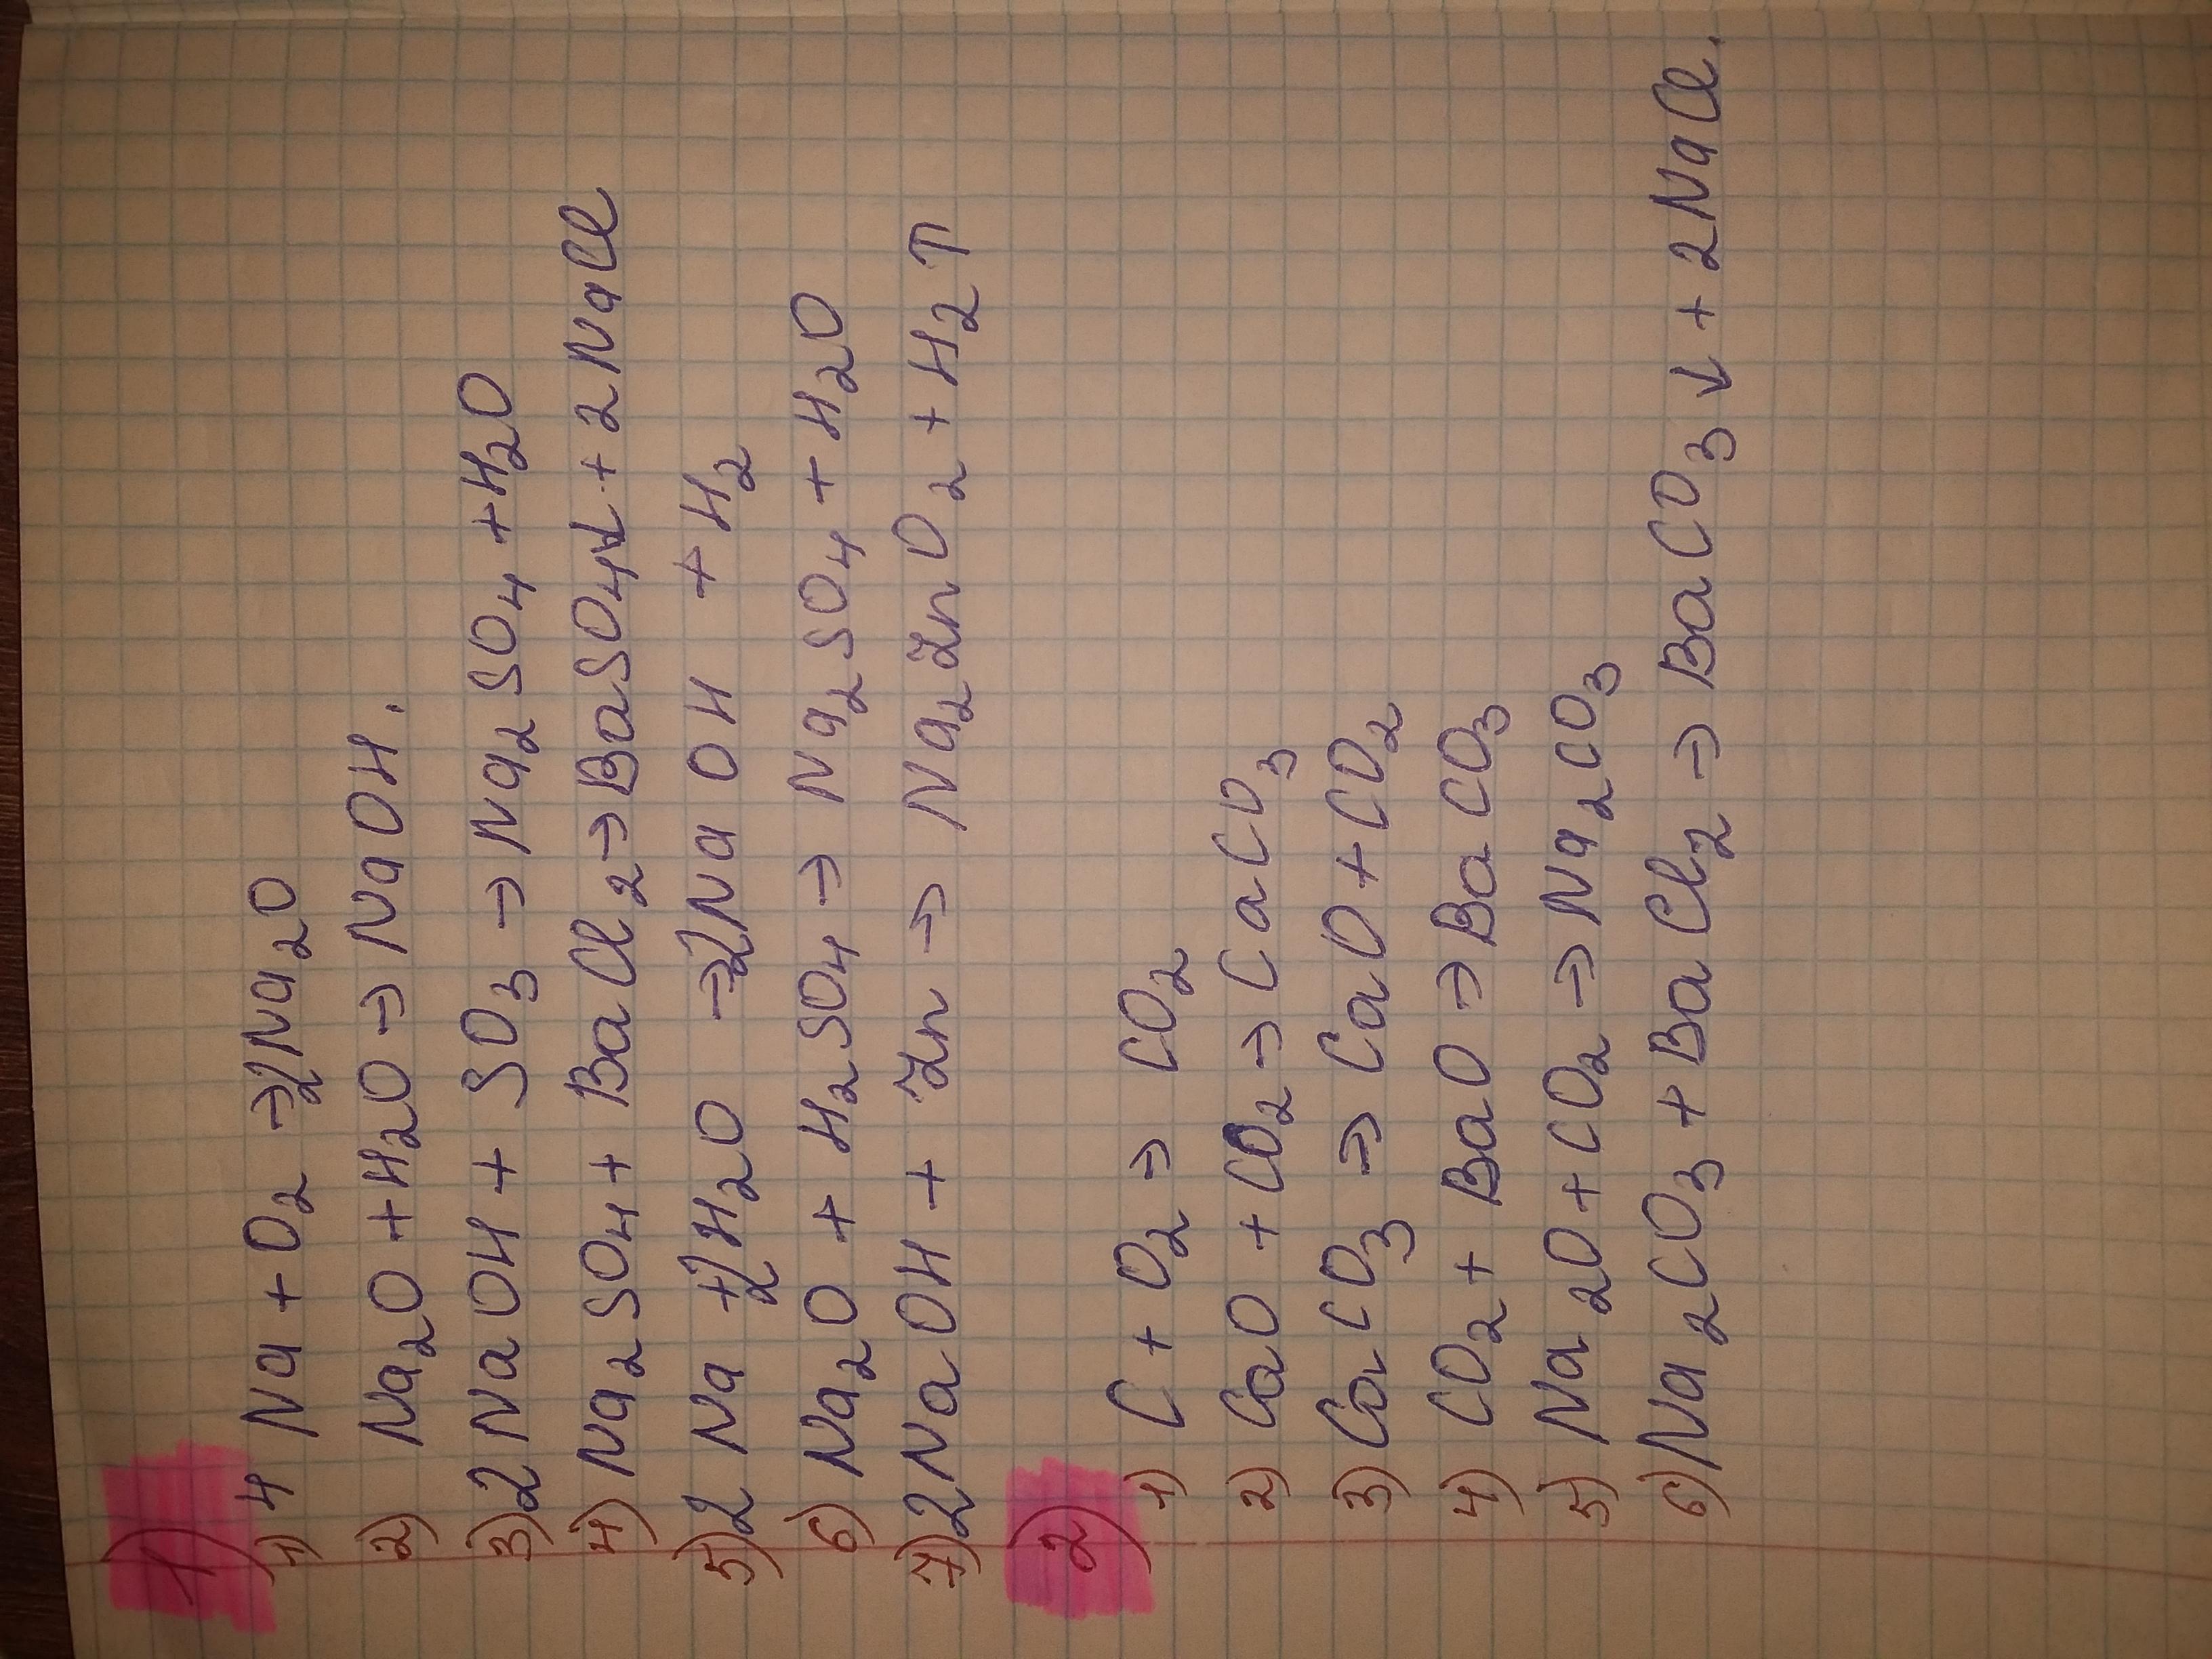 1)
1) 4 Na + O₂ → 2Na₂O
2) Na₂O + H₂O → NaOH.
3) 2NaOH + SO₃ → Na₂SO₄ + H₂O
4) Na₂SO₄ + BaCl₂ → BaSO₄↓ + 2NaCl
5) 2Na + 2H₂O → 2NaOH + H₂
6) Na₂O + H₂SO₄ → Na₂SO₄ + H₂O
7) 2NaOH + Zn → Na₂ZnO₂ + H₂↑
2)
1) C + O₂ → CO₂
2) CaO + CO₂ → CaCO₃
3) CaCO₃ → CaO + CO₂
4) CO₂ + BaO → BaCO₃
5) Na₂O + CO₂ → Na₂CO₃
6) Na₂CO₃ + BaCl₂ → BaCO₃↓ + 2NaCl.